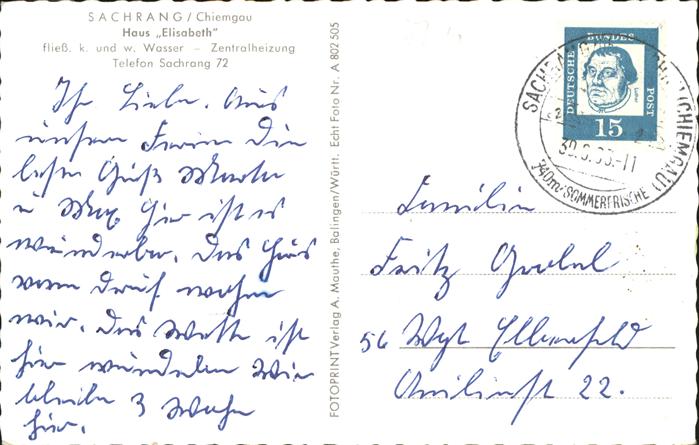 SACHRANG / Chiemgau
Haus „Elisabeth"
fließ. k. und w. Wasser – Zentralheizung
Telefon Sachrang 72
Ihr Lieben. Aus
unsern Ferien die
besten Grüß Martha
u Max hier ist es
wunderbar. Das Haus
vorn drauf wohnen
wir. Das Wetter ist
hier wunderbar Wir
bleiben 3 Wochen
hier.
FOTOPRINT Verlag A. Mauthe, Balingen/Württ. Echt Foto Nr. A 802 505
DEUTSCHE BUNDESPOST
Luther
15
SACHRANG (CHIEMGAU)
740m SOMMERFRISCHE
Familie
Fritz
56 Wpt Elberfeld
22.